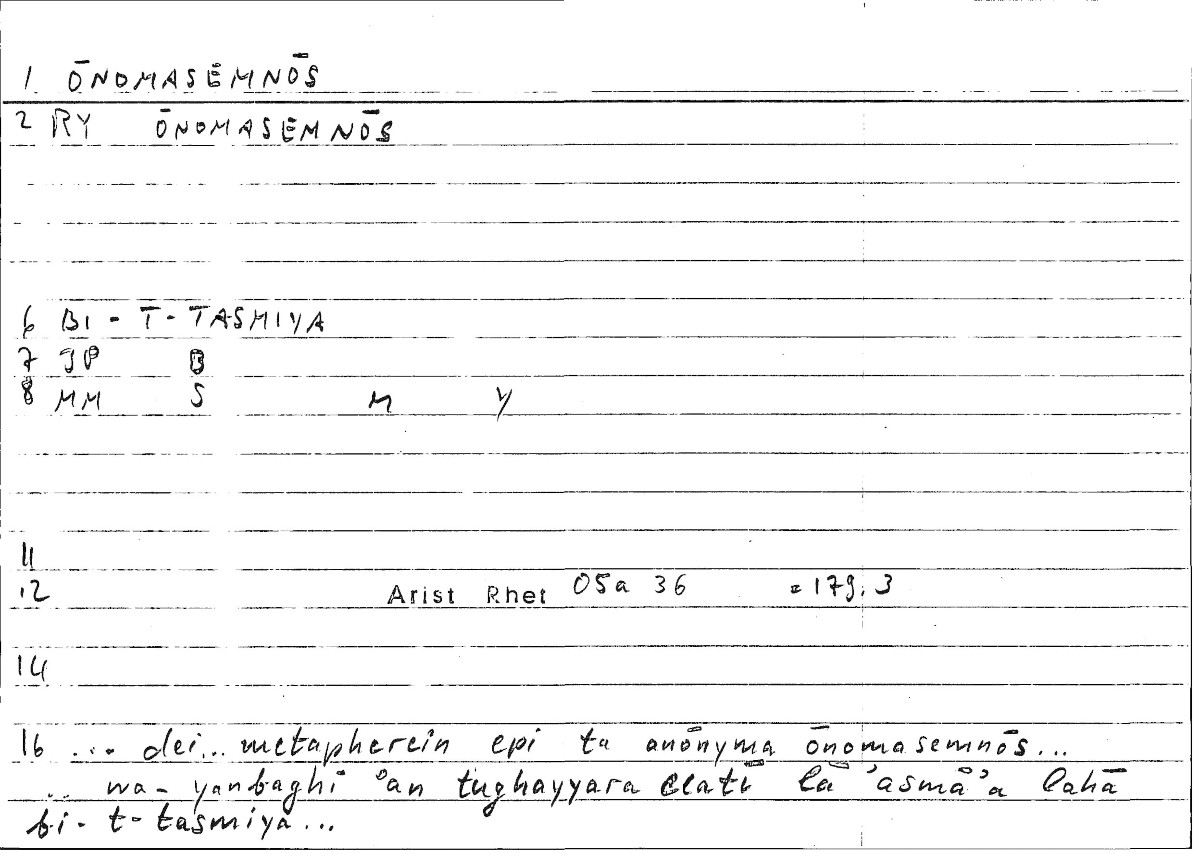 1 ŌNOMASĒMNŌS
2 RY ŌNOMASĒMNŌS
6 BI - T - TASMIYA
7 JP B
8 MM S M Y
11
12 Arist Rhet 05a 36 = 179.3
14
16 ... dei... metapherein epi ta anōnyma ōnomasemnōs...
.. wa- yanbaghī ʾan tughayyara llatī lā ʾasmāʾa lahā
bi- t- tasmiya...